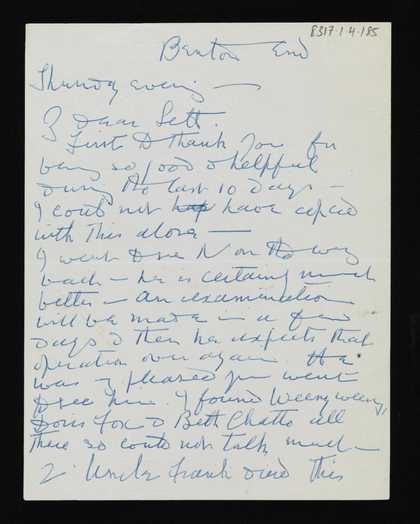 8317.1.4.185
Benton End
Thursday evening —
My dear Lett.
First to thank you for
being so good & helpful
during the last 10 days —
I could not have coped
with this alone —
I went to see N on the way
back — he is certainly much
better — an examination
will be made in a few
days & then he expects that
operation over again He
was so pleased you went
to see him. I found Weeny weeny,
Doris Fox & Beth Chatto all
there so could not talk much —
2. Uncle Frank died this